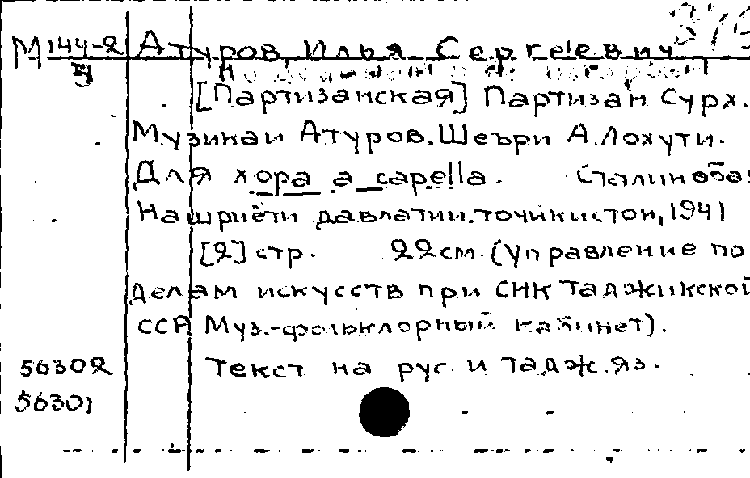 М 144-2 Атуров, Илья Сергеевич
[Партизанская] Партизан Сурх.
Музикаи Атуров. Шеъри А. Лохути.
Для хора a capella. Сталинаба
Нашриёти давлатии точикистон, 1941
[2] стр. 22 см. (Управление по
делам искусств при СНК Таджикской
ССР Муз.-фольклорный кабинет).
56302 Текст на рус. и тадж. яз.
56301